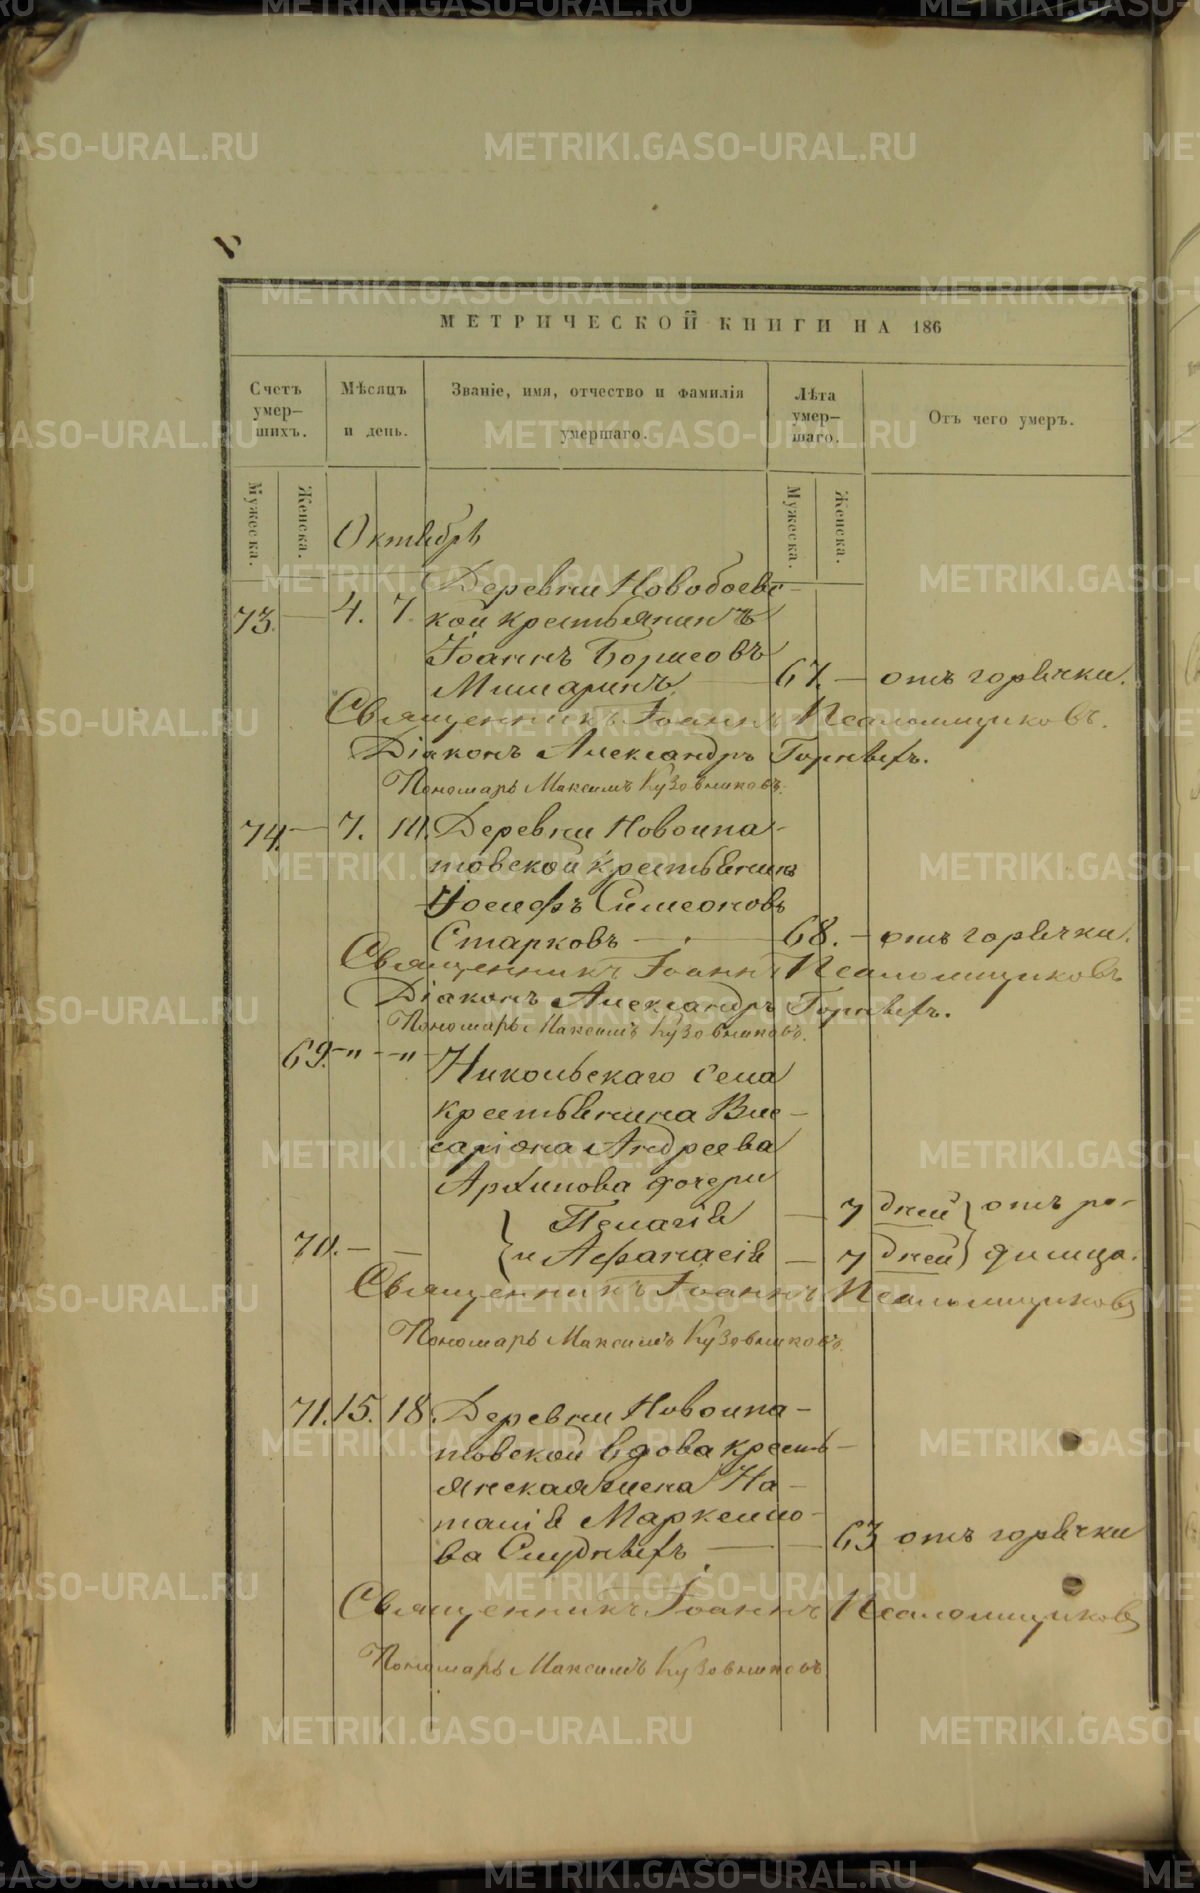 МЕТРИЧЕСКОЙ КНИГИ НА 186
Счетъ умер-шихъ.
Мѣсяцъ и день.
Званіе, имя, отчество и фамилія умершаго.
Лѣта умер-шаго.
Отъ чего умеръ.
Мужеска.
Женска.
Мужеска.
Женска.
Октябрь
Деревни Новобоевс-
73. — 4. 7. кой крестьянинъ
Іоаннъ Борисовъ
Мишаринъ — 67. — отъ горячки.
Священникъ Іоаннъ Псаломщиковъ.
Діаконъ Александръ Горныхъ.
Пономарь Максимъ Кузовниковъ.
74. — 7. 10. Деревни Новоипа-
товской крестьянинъ
Іосифъ Симеоновъ
Старковъ — 68. — отъ горячки.
Священникъ Іоаннъ Псаломщиковъ
Діаконъ Александръ Горныхъ.
Пономарь Максимъ Кузовниковъ.
69. — " — " — Никольскаго села
крестьянина Вис-
саріона Андреева
Архипова дочери
Пелагія — 7 дней } отъ ро-
70. — — { и Афанасія — 7 дней } димца.
Священникъ Іоаннъ Псаломщиковъ
Пономарь Максимъ Кузовниковъ.
71. 15. 18. Деревни Новоипа-
товской вдова кресть-
янская жена На-
талія Маркелло-
ва Смудныхъ — 63 отъ горячки
Священникъ Іоаннъ Псаломщиковъ
Пономарь Максимъ Кузовниковъ
METRIKI.GASO-URAL.RU